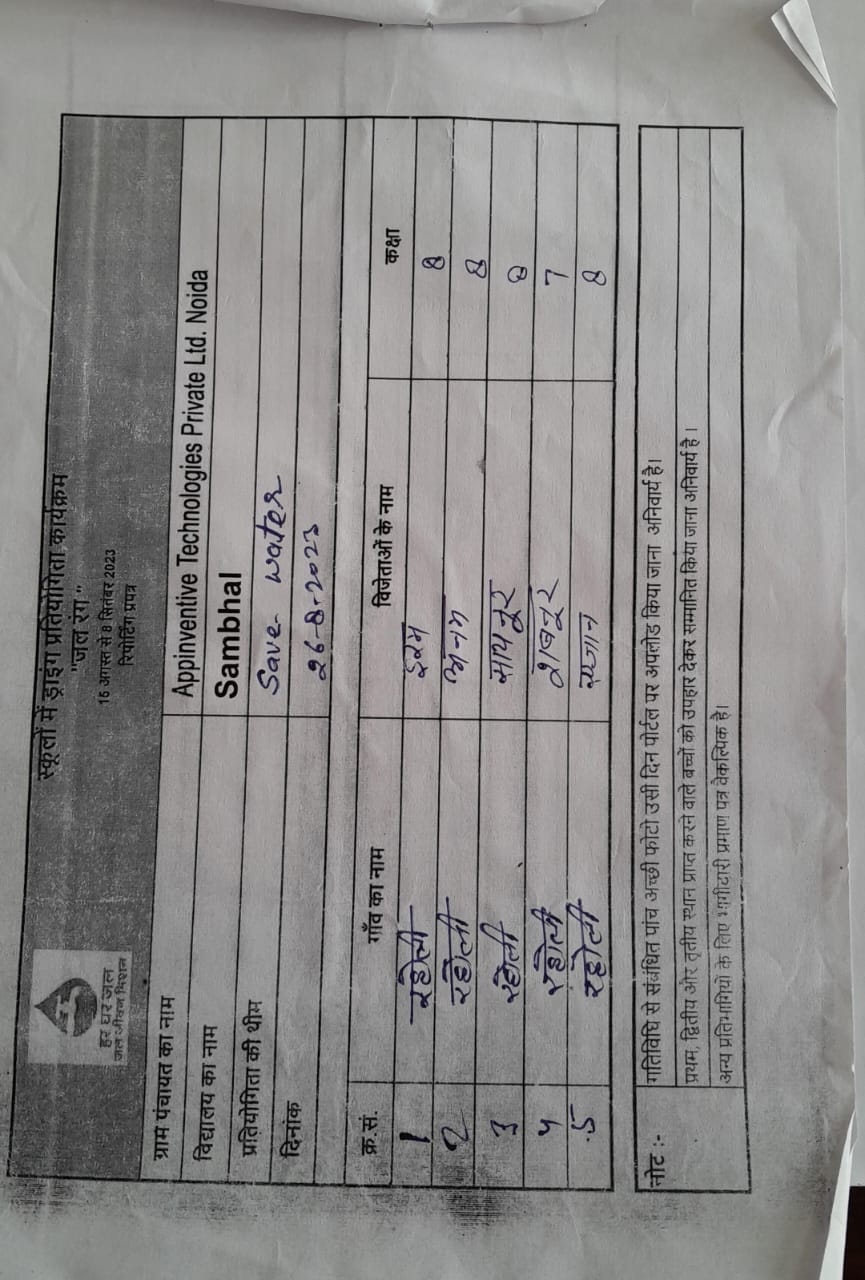 स्कूलों में ड्राइंग प्रतियोगिता कार्यक्रम
"जल रंग"
16 अगस्त से 8 सितंबर 2023
रिपोर्टिंग प्रपत्र
हर घर जल
जल जीवन मिशन
ग्राम पंचायत का नाम Appinventive Technologies Private Ltd. Noida
विद्यालय का नाम Sambhal
प्रतियोगिता की थीम Save water
दिनांक 26-8-2023
क्र.सं. गाँव का नाम विजेताओं के नाम कक्षा
1 रहोली इरम 8
2 रहोली अनम 8
3 रहोली सायनूर 8
4 रहोली शबनूर 7
5 रहोली 8
नोट :- गतिविधि से संबंधित पांच अच्छी फोटो उसी दिन पोर्टल पर अपलोड किया जाना अनिवार्य है।
प्रथम, द्वितीय और तृतीय स्थान प्राप्त करने वाले बच्चों को उपहार देकर सम्मानित किया जाना अनिवार्य है।
अन्य प्रतिभागियों के लिए भागीदारी प्रमाण पत्र वैकल्पिक है।